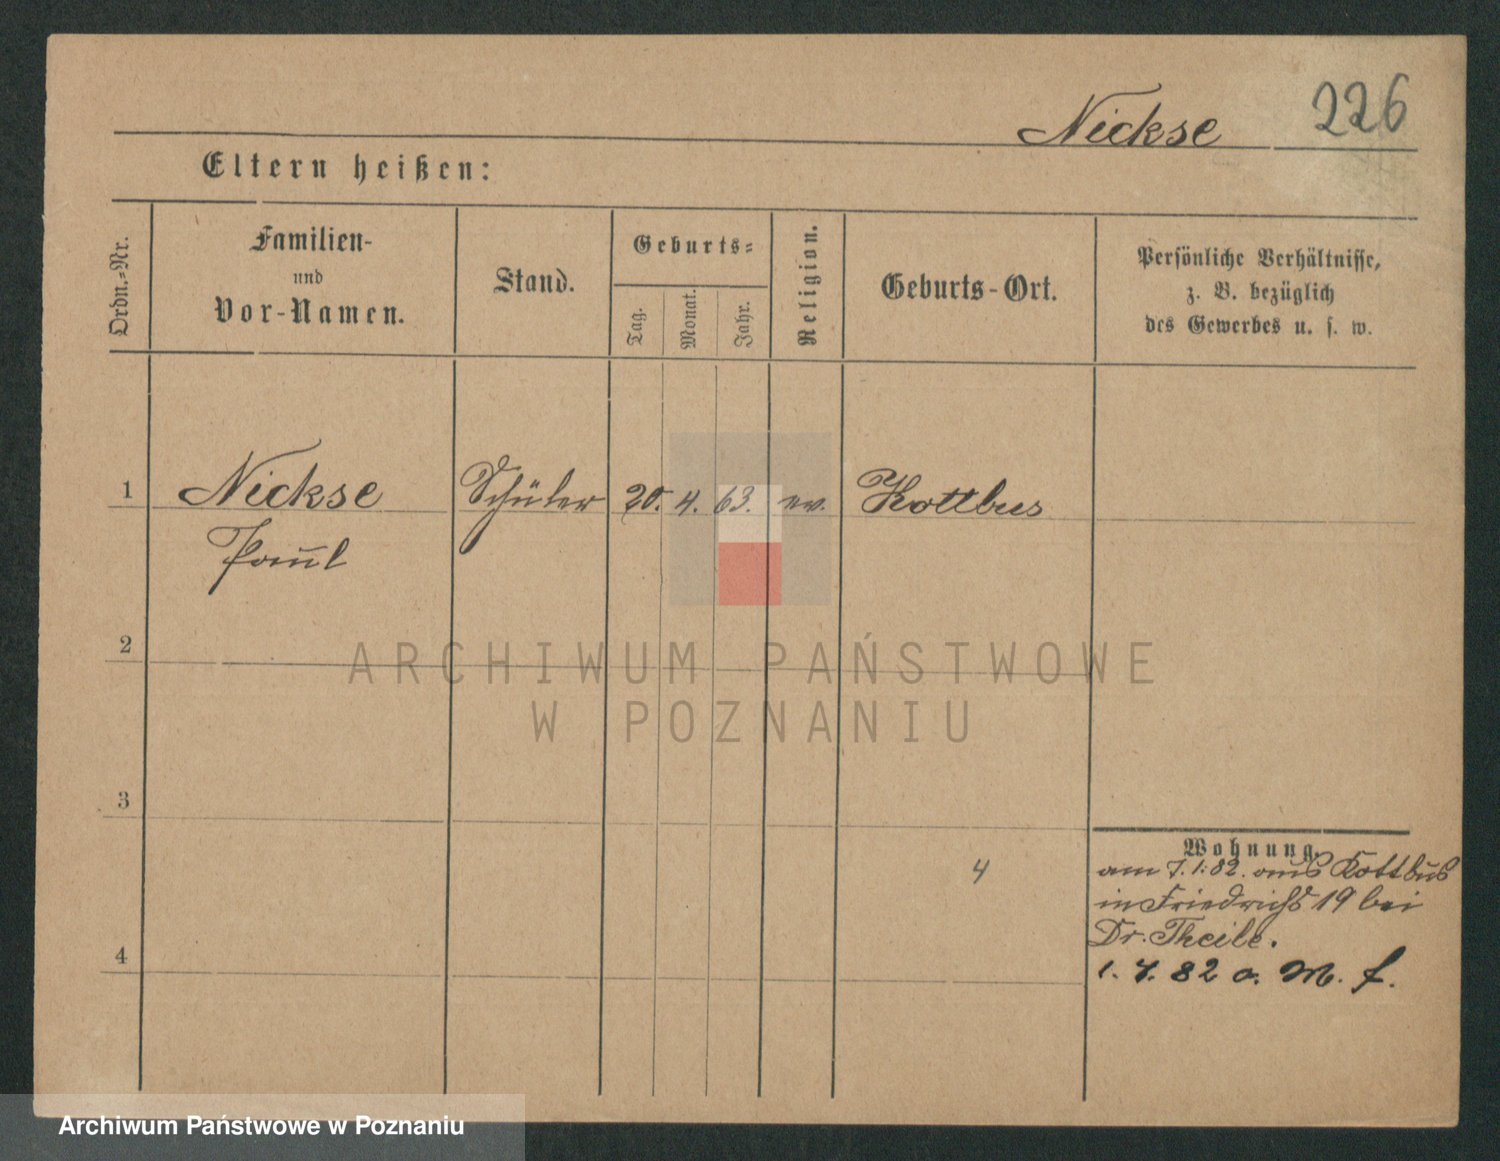 Nickse 226
Eltern heißen:
Ordn.-Nr.
Familien-
und
Vor-Namen.
Stand.
Geburts-
Tag.
Monat.
Jahr.
Religion.
Geburts-Ort.
Persönliche Verhältnisse,
z. B. bezüglich
des Gewerbes u. s. w.
1 Nickse Schüler 20. 4. 63. ev. Kottbus
Paul
2
ARCHIWUM PAŃSTWOWE
W POZNANIU
3
Wohnung.
4
am 7.1.82. aus Kottbus
in Friedrichs 19 bei
Dr. Theile.
4
1. 4. 82 a. M. f.
Archiwum Państwowe w Poznaniu